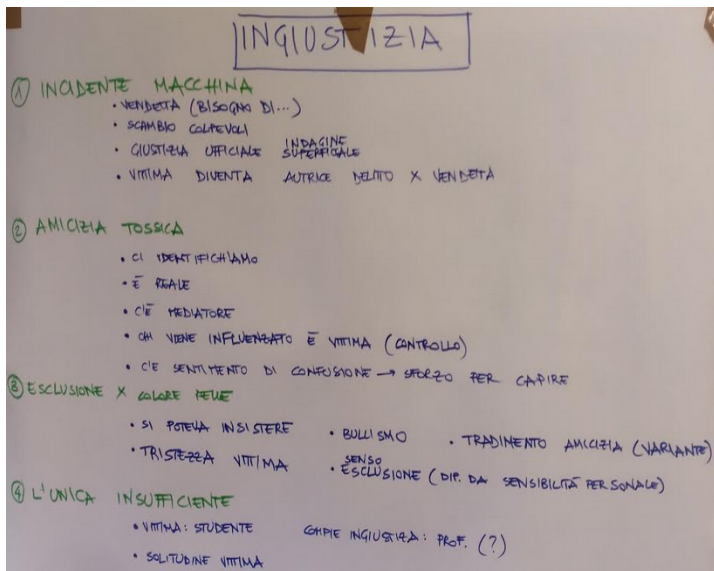 INGIUSTIZIA
① INCIDENTE MACCHINA
• VENDETTA (BISOGNO DI...)
• SCAMBIO COLPEVOLI
• GIUSTIZIA UFFICIALE INDAGINE SUPERFICIALE
• VITTIMA DIVENTA AUTRICE DELITO X VENDETTA
② AMICIZIA TOSSICA
• CI IDENTIFICHIAMO
• È REALE
• C'È MEDIATORE
• CHI VIENE INFLUENZATO È VITTIMA (CONTROLLO)
• C'E SENTIMENTO DI CONFUSIONE → SFORZO PER CAPIRE
③ ESCLUSIONE X COLORE PELLE
• SI POTEVA INSISTERE • BULLISMO • TRADIMENTO AMICIZIA (VARIANTE)
• TRISTEZZA VITTIMA • SENSO ESCLUSIONE (DIP. DA SENSIBILITÀ PERSONALE)
④ L'UNICA INSUFFICIENTE
• VITTIMA: STUDENTE COMPIE INGIUSTIZIA: PROF. (?)
• SOLITUDINE VITTIMA